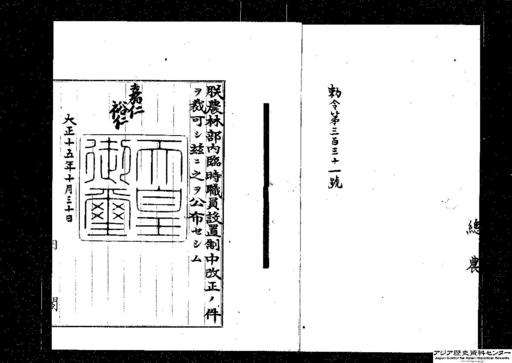 勅令第三百三十一號
總農
朕農林部內臨時職員設置制中改正ノ件
ヲ裁可シ茲ニ之ヲ公布セシム
嘉仁
裕仁
天皇御璽
大正十五年十月三十日
アジア歴史資料センター
Japan Center for Asian Historical Records